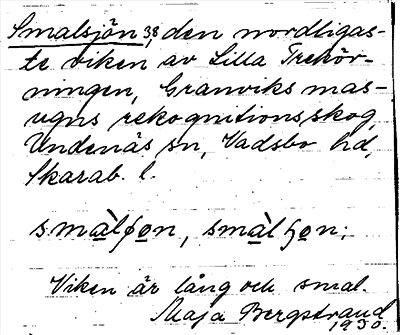 Smalsjön 38, den nordligas-
te viken av Lilla Trehör-
ningen, Granviks mas-
ugns rekognitionsskog,
Undenäs sn, Vadsbo hd,
Skarab. l.
smàlʃo̲n, smàlɧo̲n;
Viken är lång och smal.
Maja Bergstrand
1930.